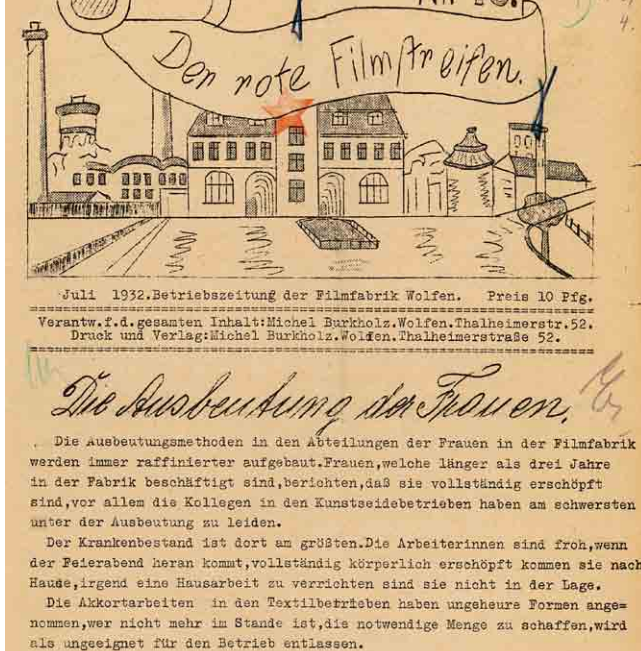 Nr 10.
4.
Der rote Filmstreifen.
Juli 1932.Betriebszeitung der Filmfabrik Wolfen. Preis 10 Pfg.
Verantw.f.d.gesamten Inhalt:Michel Burkholz.Wolfen.Thalheimerstr.52.
Druck und Verlag:Michel Burkholz.Wolfen.Thalheimerstraße 52.
Die Ausbeutung der Frauen.
Die Ausbeutungsmethoden in den Abteilungen der Frauen in der Filmfabrik
werden immer raffinierter aufgebaut.Frauen,welche länger als drei Jahre
in der Fabrik beschäftigt sind,berichten,daß sie vollständig erschöpft
sind,vor allem die Kollegen in den Kunstseidebetrieben haben am schwersten
unter der Ausbeutung zu leiden.
Der Krankenbestand ist dort am größten.Die Arbeiterinnen sind froh,wenn
der Feierabend heran kommt,vollständig körperlich erschöpft kommen sie nach
Hause,irgend eine Hausarbeit zu verrichten sind sie nicht in der Lage.
Die Akkortarbeiten in den Textilbetrieben haben ungeheure Formen ange=
nommen,wer nicht mehr im Stande ist,die notwendige Menge zu schaffen,wird
als ungeeignet für den Betrieb entlassen.